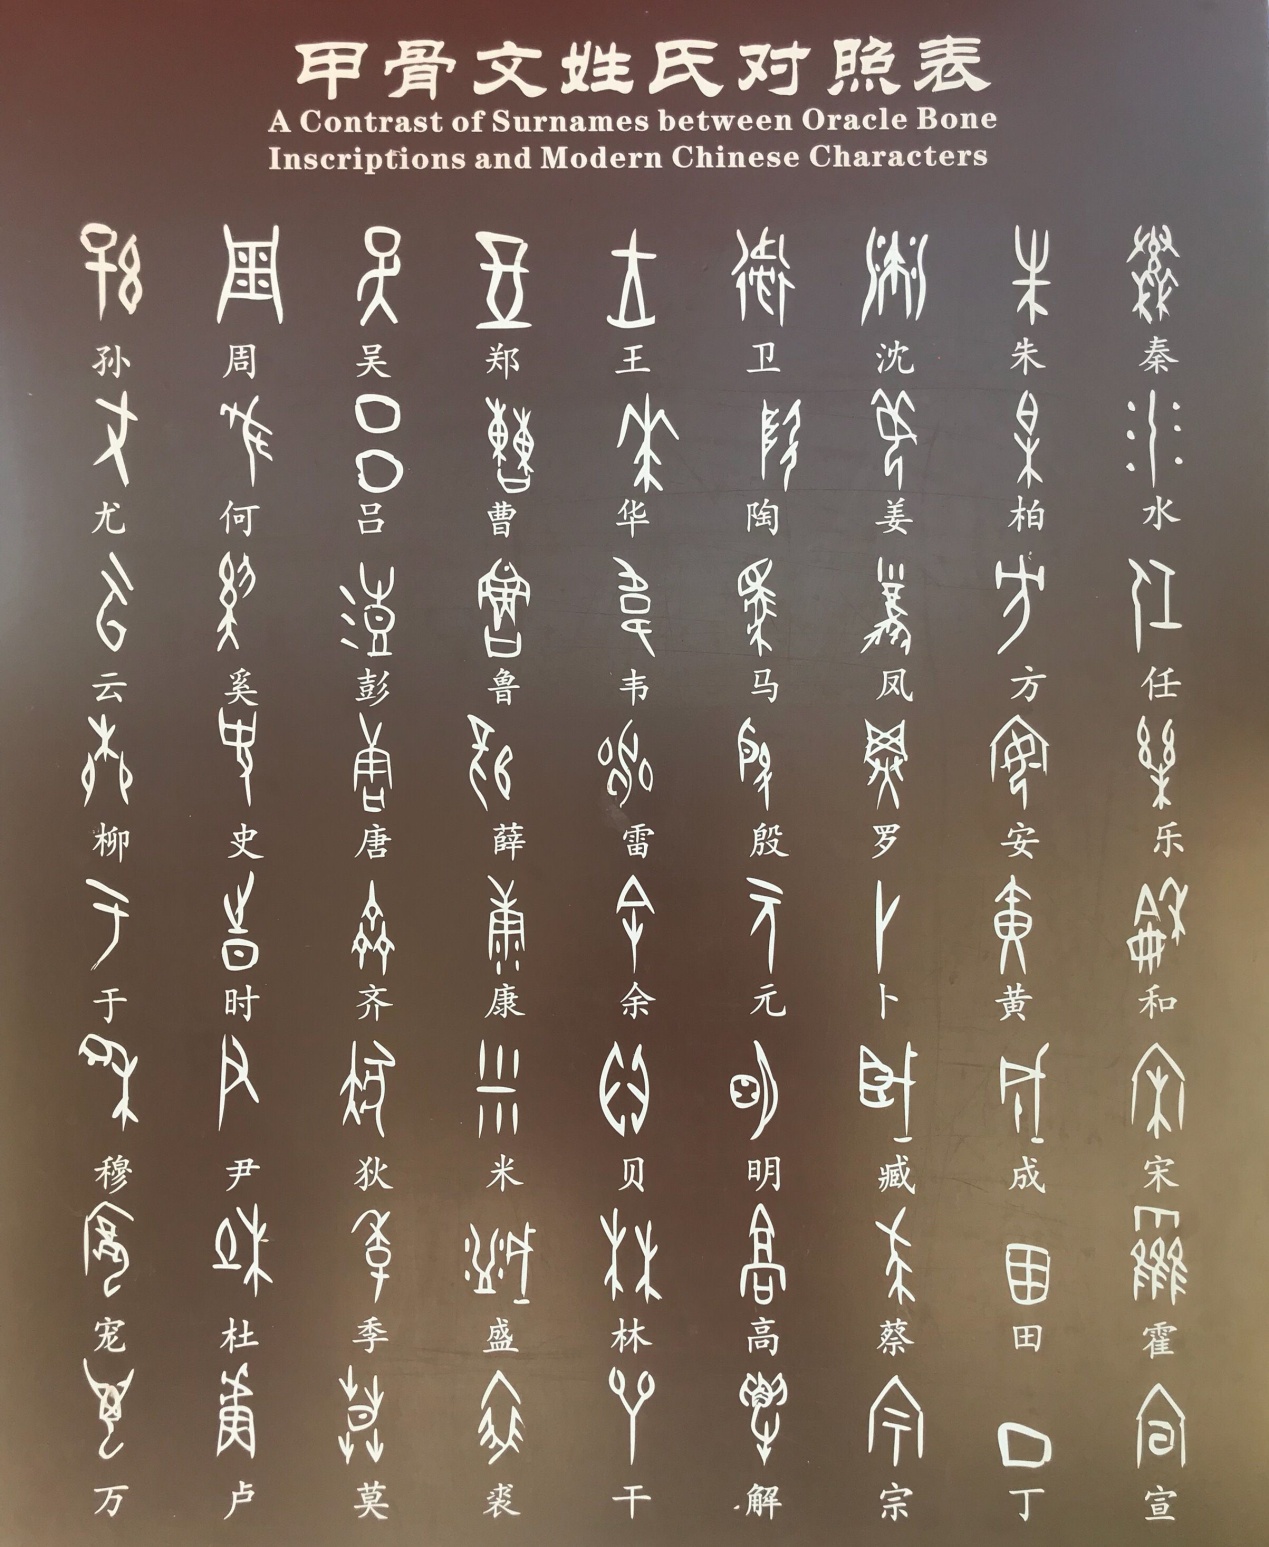 甲骨文姓氏对照表
A Contrast of Surnames between Oracle Bone
Inscriptions and Modern Chinese Characters
孙 周 吴 郑 王 卫 沈 朱 秦
尤 何 吕 曹 华 陶 姜 柏 水
云 奚 彭 鲁 韦 马 凤 方 任
柳 史 唐 薛 雷 殷 罗 安 乐
于 时 齐 康 余 元 卜 黄 和
穆 尹 狄 米 贝 明 臧 成 宋
宠 杜 季 盛 林 高 蔡 田 霍
万 卢 莫 裘 干 解 宗 丁 宣